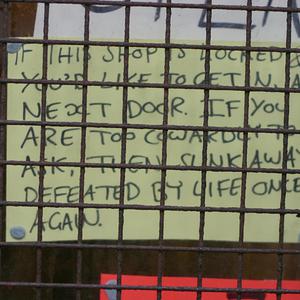 OPEN
IF THIS SHOP IS LOCKED &
YOU'D LIKE TO GET IN, A
NEXT DOOR. IF YOU
ARE TOO COWARDLY TO
ASK, THEN SLINK AWAY
DEFEATED BY LIFE ONCE
AGAIN.